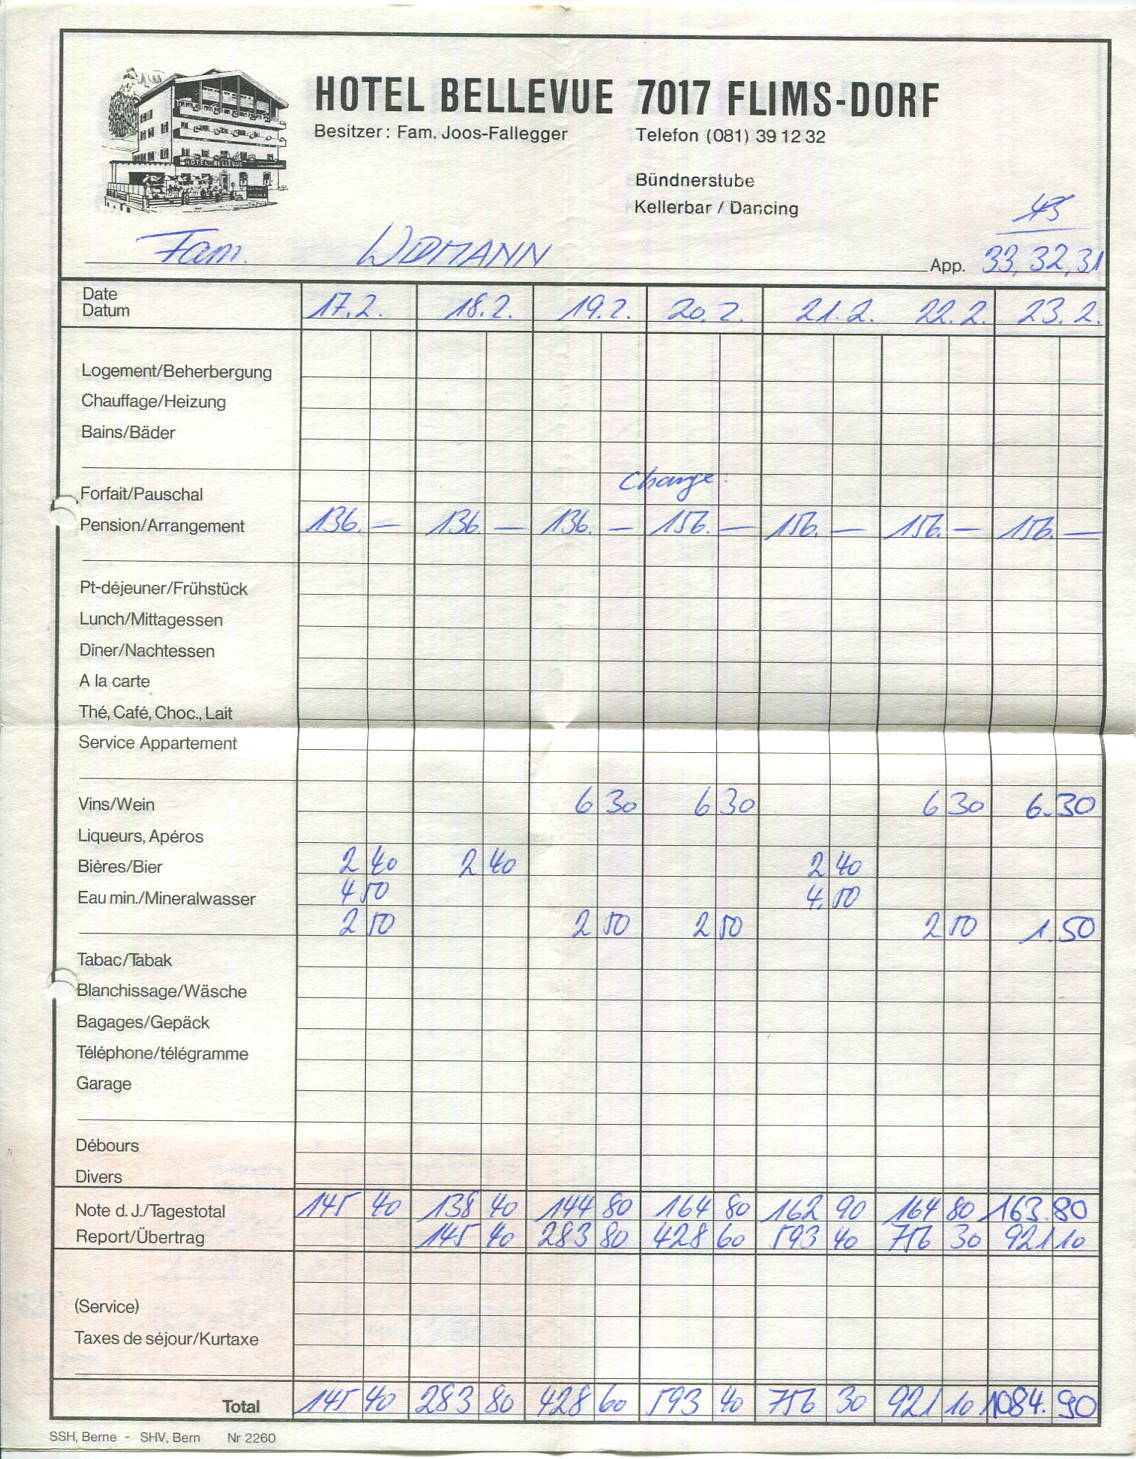 HOTEL BELLEVUE 7017 FLIMS-DORF
Besitzer: Fam. Joos-Fallegger Telefon (081) 39 12 32
Bündnerstube
Kellerbar / Dancing
HOTEL BELLEVUE
45
Fam. WIDMANN App. 33, 32, 31
Date
Datum 17.2. 18.2. 19.2. 20.2. 21.2. 22.2. 23.2.
Logement/Beherbergung
Chauffage/Heizung
Bains/Bäder
Change
Forfait/Pauschal
Pension/Arrangement 136.— 136.— 136.— 156.— 156.— 156.— 156.—
Pt-déjeuner/Frühstück
Lunch/Mittagessen
Dîner/Nachtessen
A la carte
Thé, Café, Choc., Lait
Service Appartement
Vins/Wein 6 30 6 30 6 30 6.30
Liqueurs, Apéros
Bières/Bier 2 40 2 40 2 40
Eau min./Mineralwasser 4 50 4.50
2 50 2 50 2 50 2 50 1.50
Tabac/Tabak
Blanchissage/Wäsche
Bagages/Gepäck
Téléphone/télégramme
Garage
Débours
Divers
Note d. J./Tagestotal 145 40 138 40 144 80 164 80 162 90 164 80 163.80
Report/Übertrag 145 40 283 80 428 60 593 40 756 30 921 10
(Service)
Taxes de séjour/Kurtaxe
Total 145 40 283 80 428 60 593 40 756 30 921 10 1084.90
SSH, Berne - SHV, Bern Nr 2260